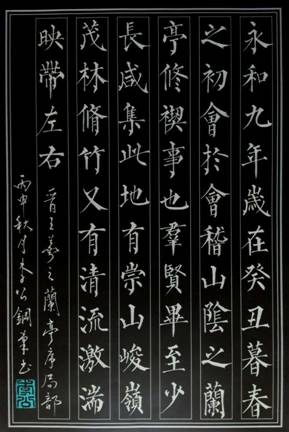 永和九年歲在癸丑暮春
之初會於會稽山陰之蘭
亭脩禊事也羣賢畢至少
長咸集此地有崇山峻嶺
茂林脩竹又有清流激湍
映帶左右
晉王羲之蘭亭序局部
丙申秋月 公鋼筆書